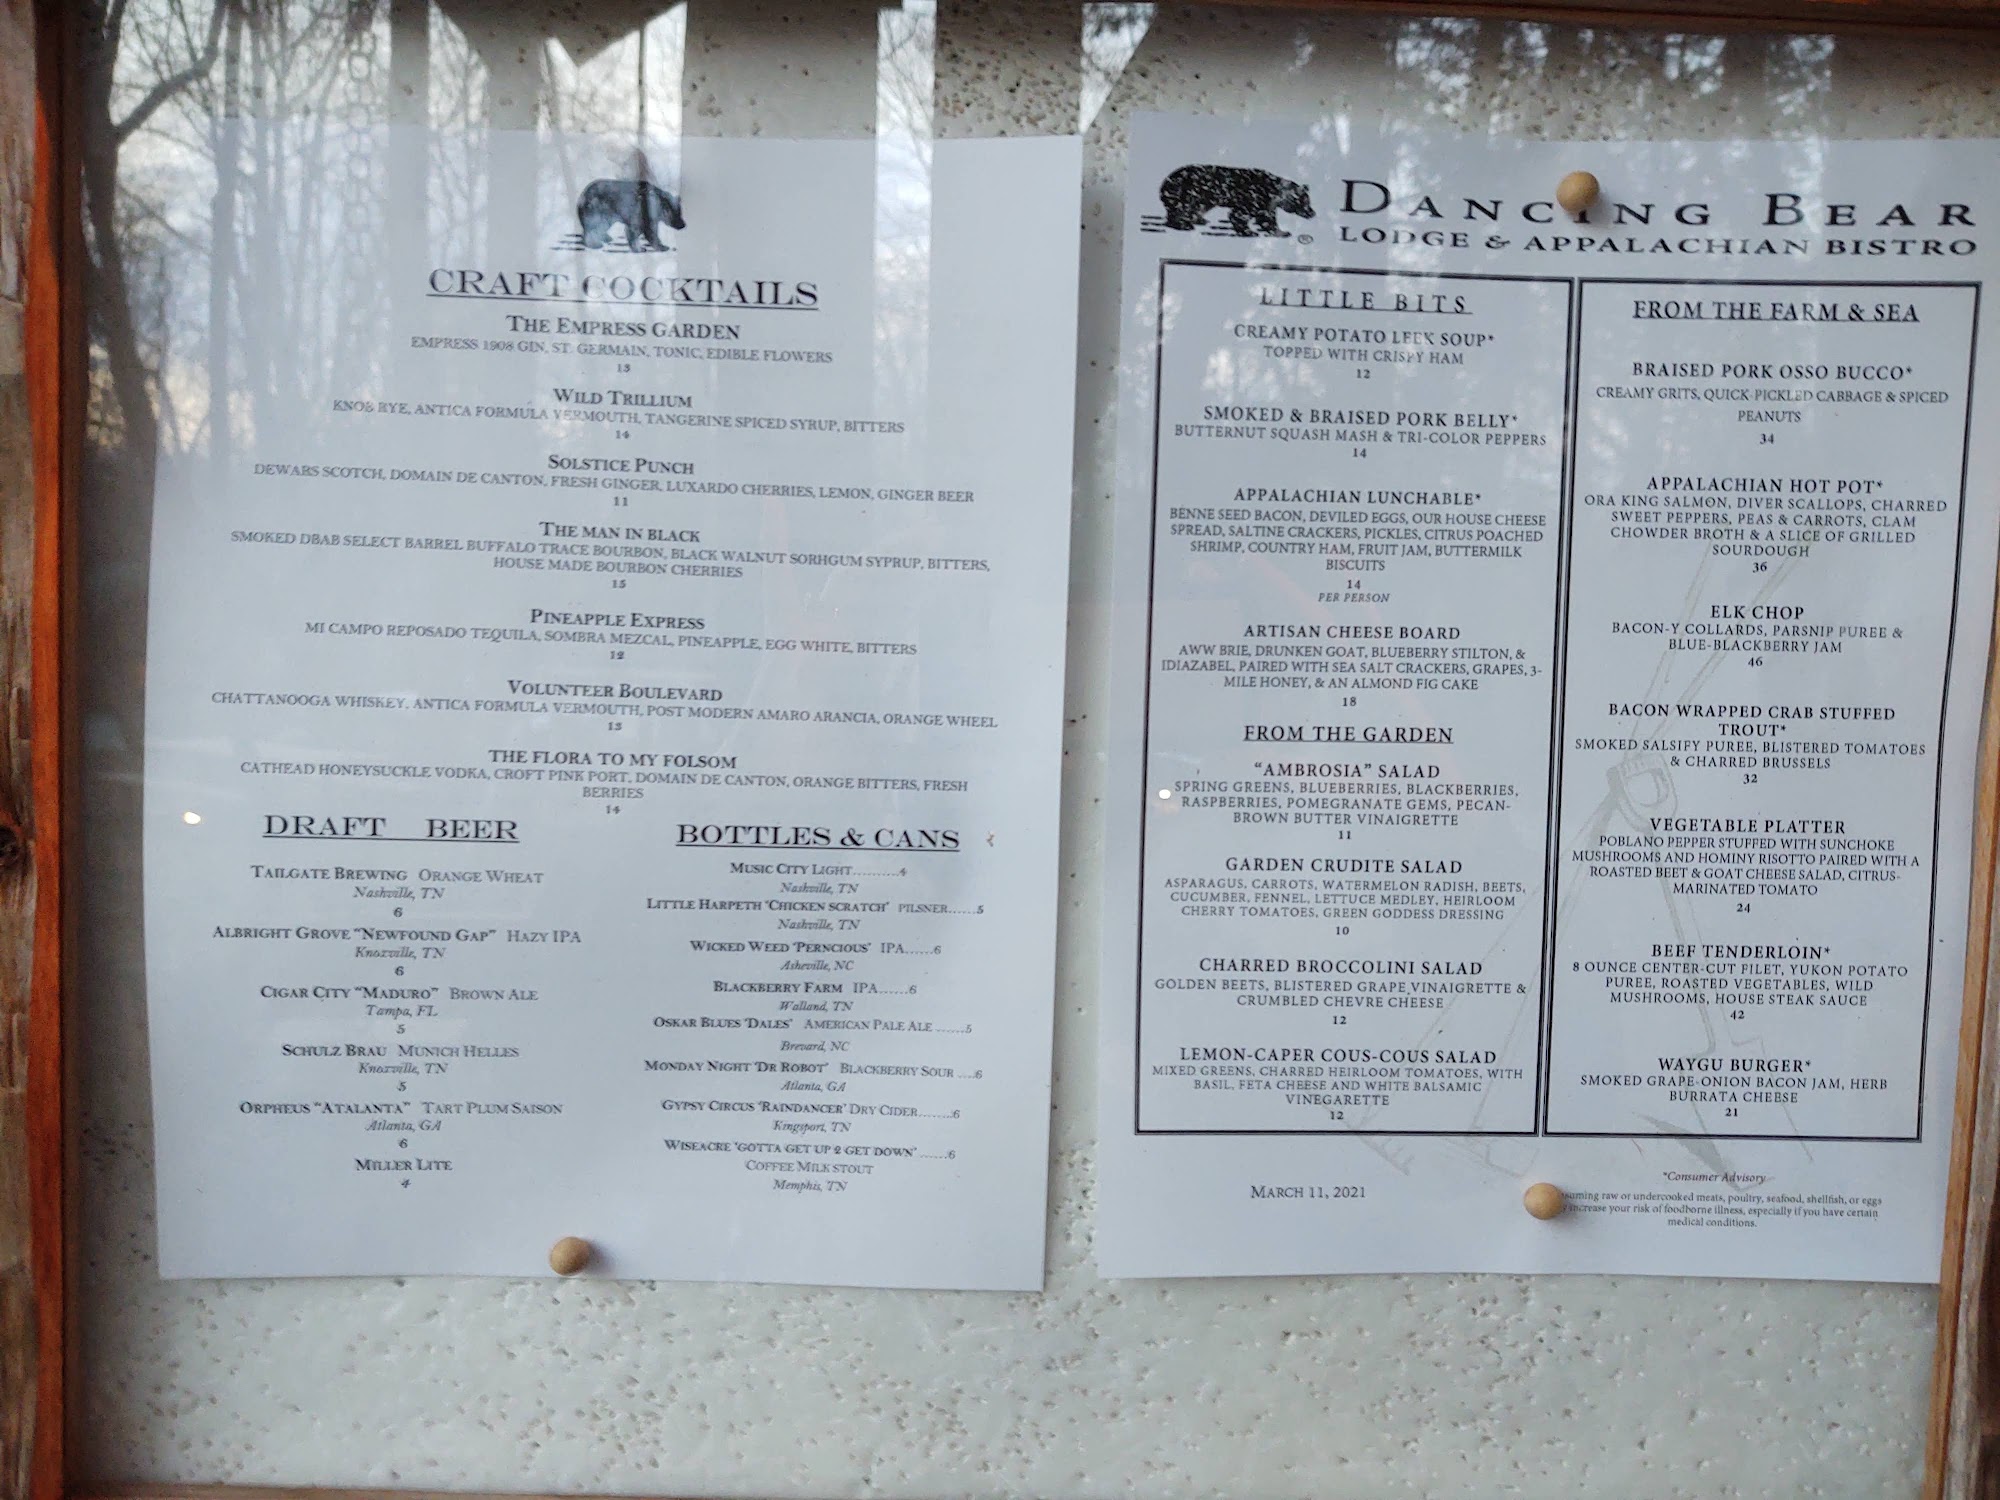 CRAFT COCKTAILS
THE EMPRESS GARDEN
EMPRESS 1908 GIN, ST. GERMAIN, TONIC, EDIBLE FLOWERS
13
WILD TRILLIUM
KNOB RYE, ANTICA FORMULA VERMOUTH, TANGERINE SPICED SYRUP, BITTERS
14
SOLSTICE PUNCH
DEWARS SCOTCH, DOMAIN DE CANTON, FRESH GINGER, LUXARDO CHERRIES, LEMON, GINGER BEER
11
THE MAN IN BLACK
SMOKED DBAB SELECT BARREL BUFFALO TRACE BOURBON, BLACK WALNUT SORHGUM SYPRUP, BITTERS,
HOUSE MADE BOURBON CHERRIES
15
PINEAPPLE EXPRESS
MI CAMPO REPOSADO TEQUILA, SOMBRA MEZCAL, PINEAPPLE, EGG WHITE, BITTERS
12
VOLUNTEER BOULEVARD
CHATTANOOGA WHISKEY, ANTICA FORMULA VERMOUTH, POST MODERN AMARO ARANCIA, ORANGE WHEEL
13
THE FLORA TO MY FOLSOM
CATHEAD HONEYSUCKLE VODKA, CROFT PINK PORT, DOMAIN DE CANTON, ORANGE BITTERS, FRESH
BERRIES
14
DRAFT BEER
TAILGATE BREWING ORANGE WHEAT
Nashville, TN
6
ALBRIGHT GROVE "NEWFOUND GAP" HAZY IPA
Knoxville, TN
6
CIGAR CITY "MADURO" BROWN ALE
Tampa, FL
5
SCHULZ BRAU MUNICH HELLES
Knoxville, TN
5
ORPHEUS "ATALANTA" TART PLUM SAISON
Atlanta, GA
6
MILLER LITE
4
BOTTLES & CANS
MUSIC CITY LIGHT..........4
Nashville, TN
LITTLE HARPETH 'CHICKEN SCRATCH' PILSNER......5
Nashville, TN
WICKED WEED 'PERNCIOUS' IPA......6
Asheville, NC
BLACKBERRY FARM IPA......6
Walland, TN
OSKAR BLUES 'DALES' AMERICAN PALE ALE ......5
Brevard, NC
MONDAY NIGHT 'DR ROBOT' BLACKBERRY SOUR ....6
Atlanta, GA
GYPSY CIRCUS 'RAINDANCER' DRY CIDER.......6
Kingsport, TN
WISEACRE 'GOTTA GET UP 2 GET DOWN' ......6
COFFEE MILK STOUT
Memphis, TN
DANCING BEAR
® LODGE & APPALACHIAN BISTRO
LITTLE BITS
CREAMY POTATO LEEK SOUP*
TOPPED WITH CRISPY HAM
12
SMOKED & BRAISED PORK BELLY*
BUTTERNUT SQUASH MASH & TRI-COLOR PEPPERS
14
APPALACHIAN LUNCHABLE*
BENNE SEED BACON, DEVILED EGGS, OUR HOUSE CHEESE
SPREAD, SALTINE CRACKERS, PICKLES, CITRUS POACHED
SHRIMP, COUNTRY HAM, FRUIT JAM, BUTTERMILK
BISCUITS
14
PER PERSON
ARTISAN CHEESE BOARD
AWW BRIE, DRUNKEN GOAT, BLUEBERRY STILTON, &
IDIAZABEL, PAIRED WITH SEA SALT CRACKERS, GRAPES, 3-
MILE HONEY, & AN ALMOND FIG CAKE
18
FROM THE GARDEN
"AMBROSIA" SALAD
SPRING GREENS, BLUEBERRIES, BLACKBERRIES,
RASPBERRIES, POMEGRANATE GEMS, PECAN-
BROWN BUTTER VINAIGRETTE
11
GARDEN CRUDITE SALAD
ASPARAGUS, CARROTS, WATERMELON RADISH, BEETS,
CUCUMBER, FENNEL, LETTUCE MEDLEY, HEIRLOOM
CHERRY TOMATOES, GREEN GODDESS DRESSING
10
CHARRED BROCCOLINI SALAD
GOLDEN BEETS, BLISTERED GRAPE VINAIGRETTE &
CRUMBLED CHEVRE CHEESE
12
LEMON-CAPER COUS-COUS SALAD
MIXED GREENS, CHARRED HEIRLOOM TOMATOES, WITH
BASIL, FETA CHEESE AND WHITE BALSAMIC
VINEGARETTE
12
FROM THE FARM & SEA
BRAISED PORK OSSO BUCCO*
CREAMY GRITS, QUICK-PICKLED CABBAGE & SPICED
PEANUTS
34
APPALACHIAN HOT POT*
ORA KING SALMON, DIVER SCALLOPS, CHARRED
SWEET PEPPERS, PEAS & CARROTS, CLAM
CHOWDER BROTH & A SLICE OF GRILLED
SOURDOUGH
36
ELK CHOP
BACON-Y COLLARDS, PARSNIP PUREE &
BLUE-BLACKBERRY JAM
46
BACON WRAPPED CRAB STUFFED
TROUT*
SMOKED SALSIFY PUREE, BLISTERED TOMATOES
& CHARRED BRUSSELS
32
VEGETABLE PLATTER
POBLANO PEPPER STUFFED WITH SUNCHOKE
MUSHROOMS AND HOMINY RISOTTO PAIRED WITH A
ROASTED BEET & GOAT CHEESE SALAD, CITRUS-
MARINATED TOMATO
24
BEEF TENDERLOIN*
8 OUNCE CENTER-CUT FILET, YUKON POTATO
PUREE, ROASTED VEGETABLES, WILD
MUSHROOMS, HOUSE STEAK SAUCE
42
WAYGU BURGER*
SMOKED GRAPE-ONION BACON JAM, HERB
BURRATA CHEESE
21
MARCH 11, 2021
*Consumer Advisory
raw or undercooked meats, poultry, seafood, shellfish, or eggs
increase your risk of foodborne illness, especially if you have certain
medical conditions.